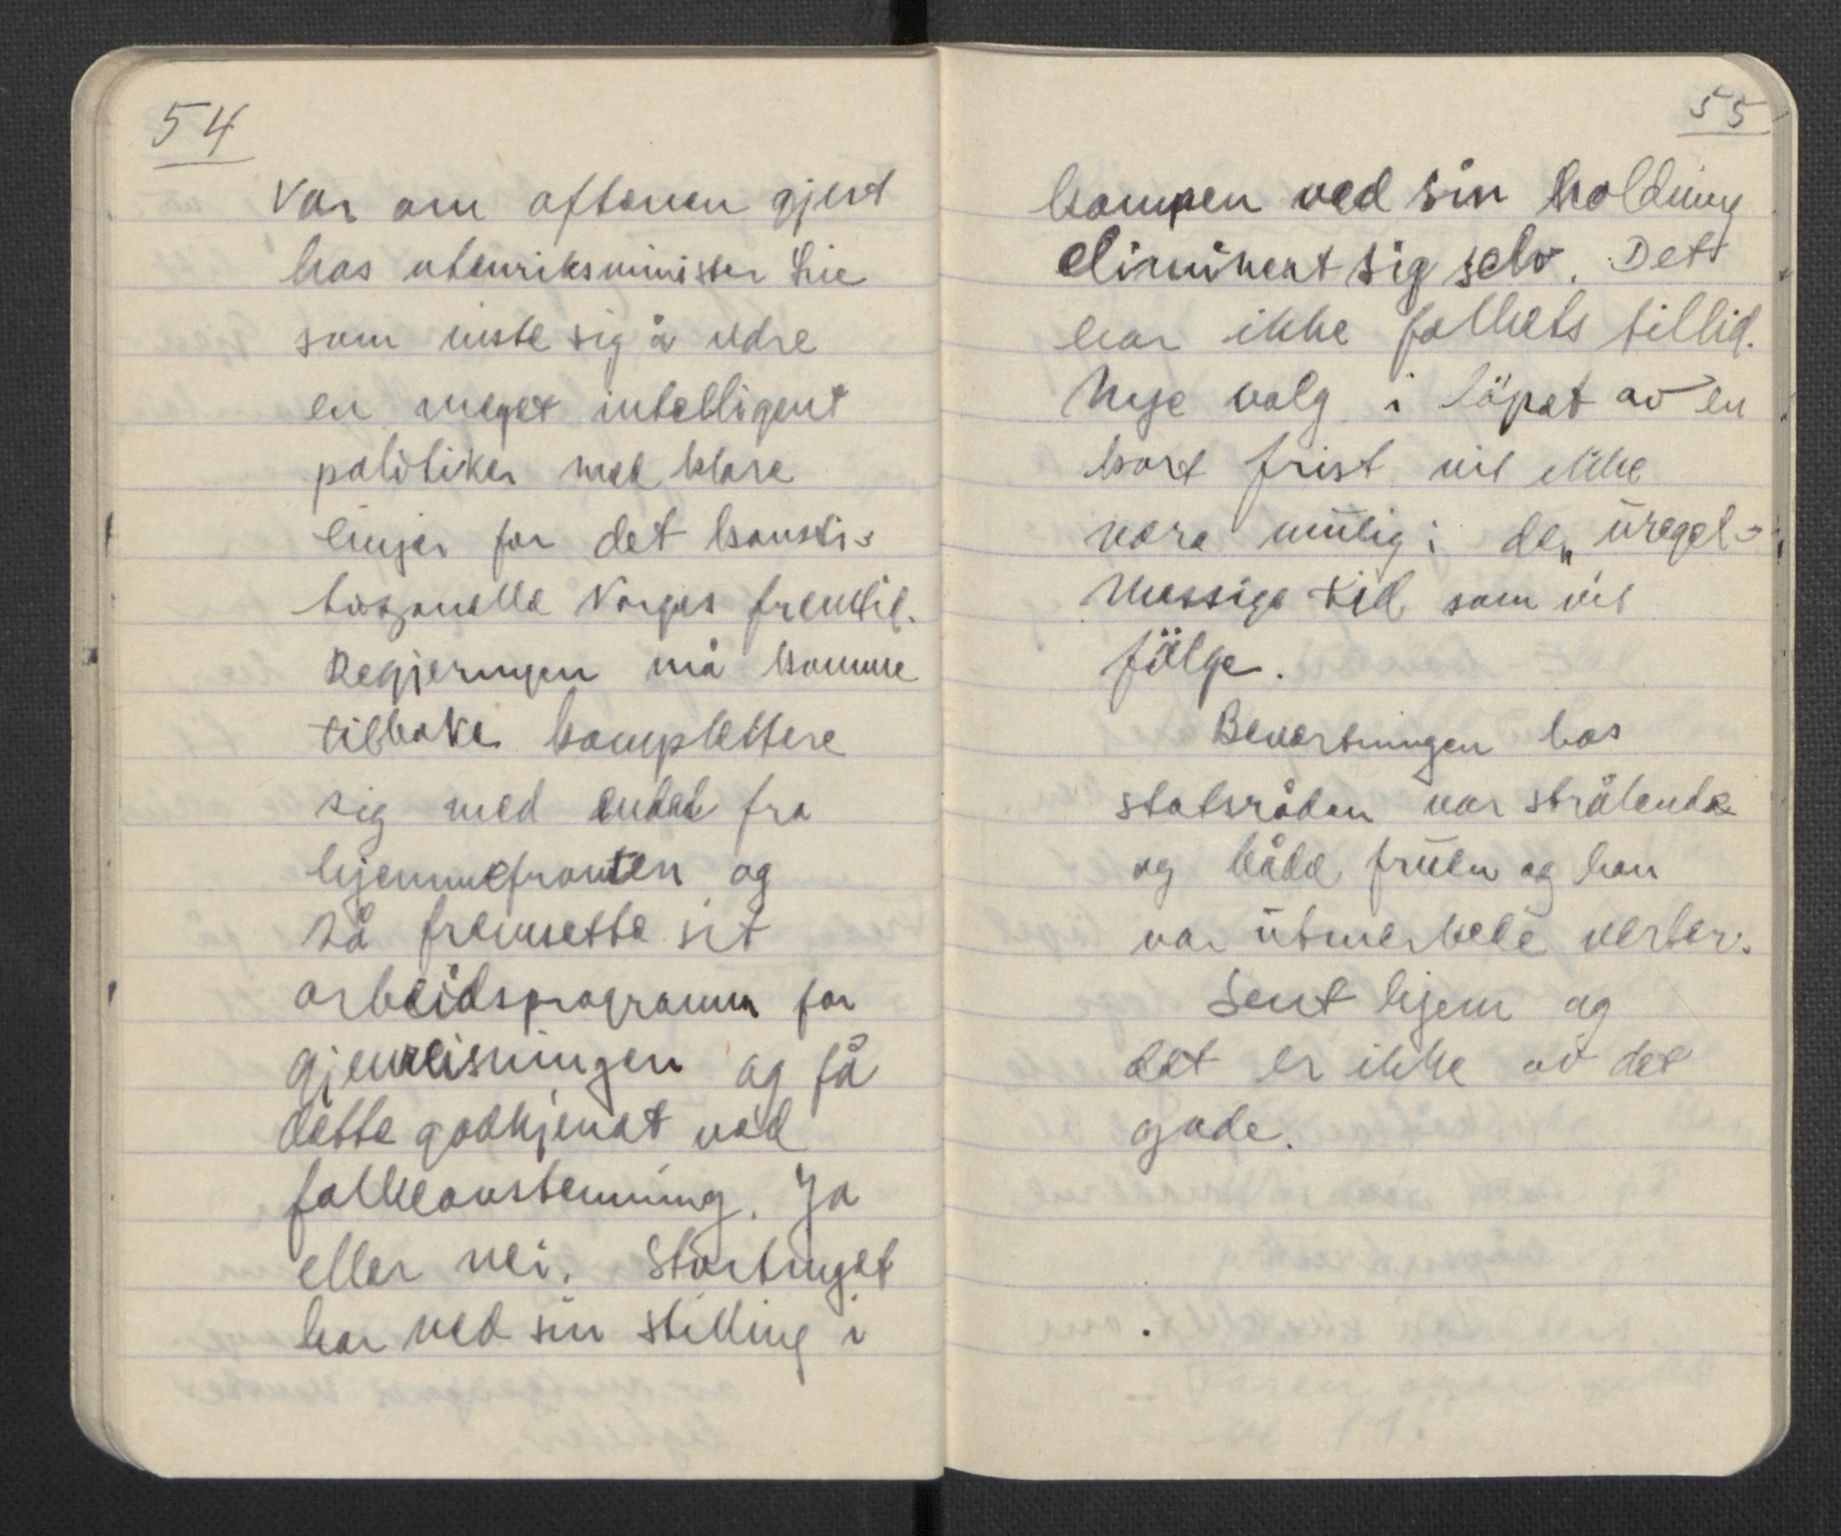 54
Var om aftenen gjest
hos utenriksminister Lie
som viste sig å vdre
en meget intelligent
politiker med klare
linjer for det konsti-
tusjonelle Norges fremtid.
Regjeringen må komme
tilbake komplettere
sig med endel fra
hjemmefronten og
så fremsette sit
arbeidsprogramm for
gjenreisningen og få
dette godkjendt ved
folkeavstemning. Ja
eller nei. Stortinget
har ved sin stilling i
55
kampen ved sin holdning
eliminert sig selv. Det
har ikke folkets tillid.
Nye valg i löpet av en
kort frist vil ikke
være mulig i den uregel-
messige tid som vil
fölge.
Bevertningen hos
statsråden var strålende
og både fruen og han
var utmerkede verter.
Sent hjem og
det er ikke av det
gode.